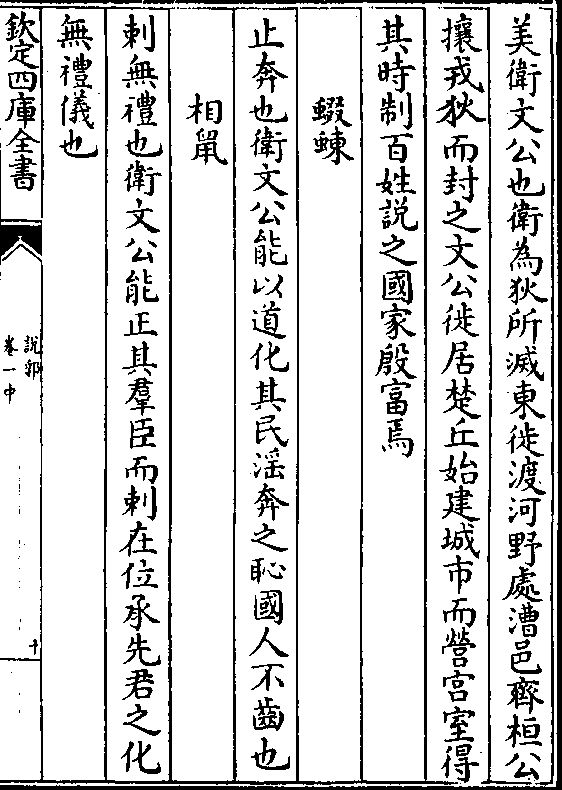 美衛文公也衛為狄所滅東徙渡河野處漕邑齊桓公
攘戎狄而封之文公徙居楚丘始建城市而營宫室得
其時制百姓説之國家殷富焉
蝃蝀
止奔也衛文公能以道化其民淫奔之恥國人不齒也
相鼠
刺無禮也衛文公能正其羣臣而刺在位承先君之化
無禮儀也
欽定四庫全書
説郛
卷一中
十